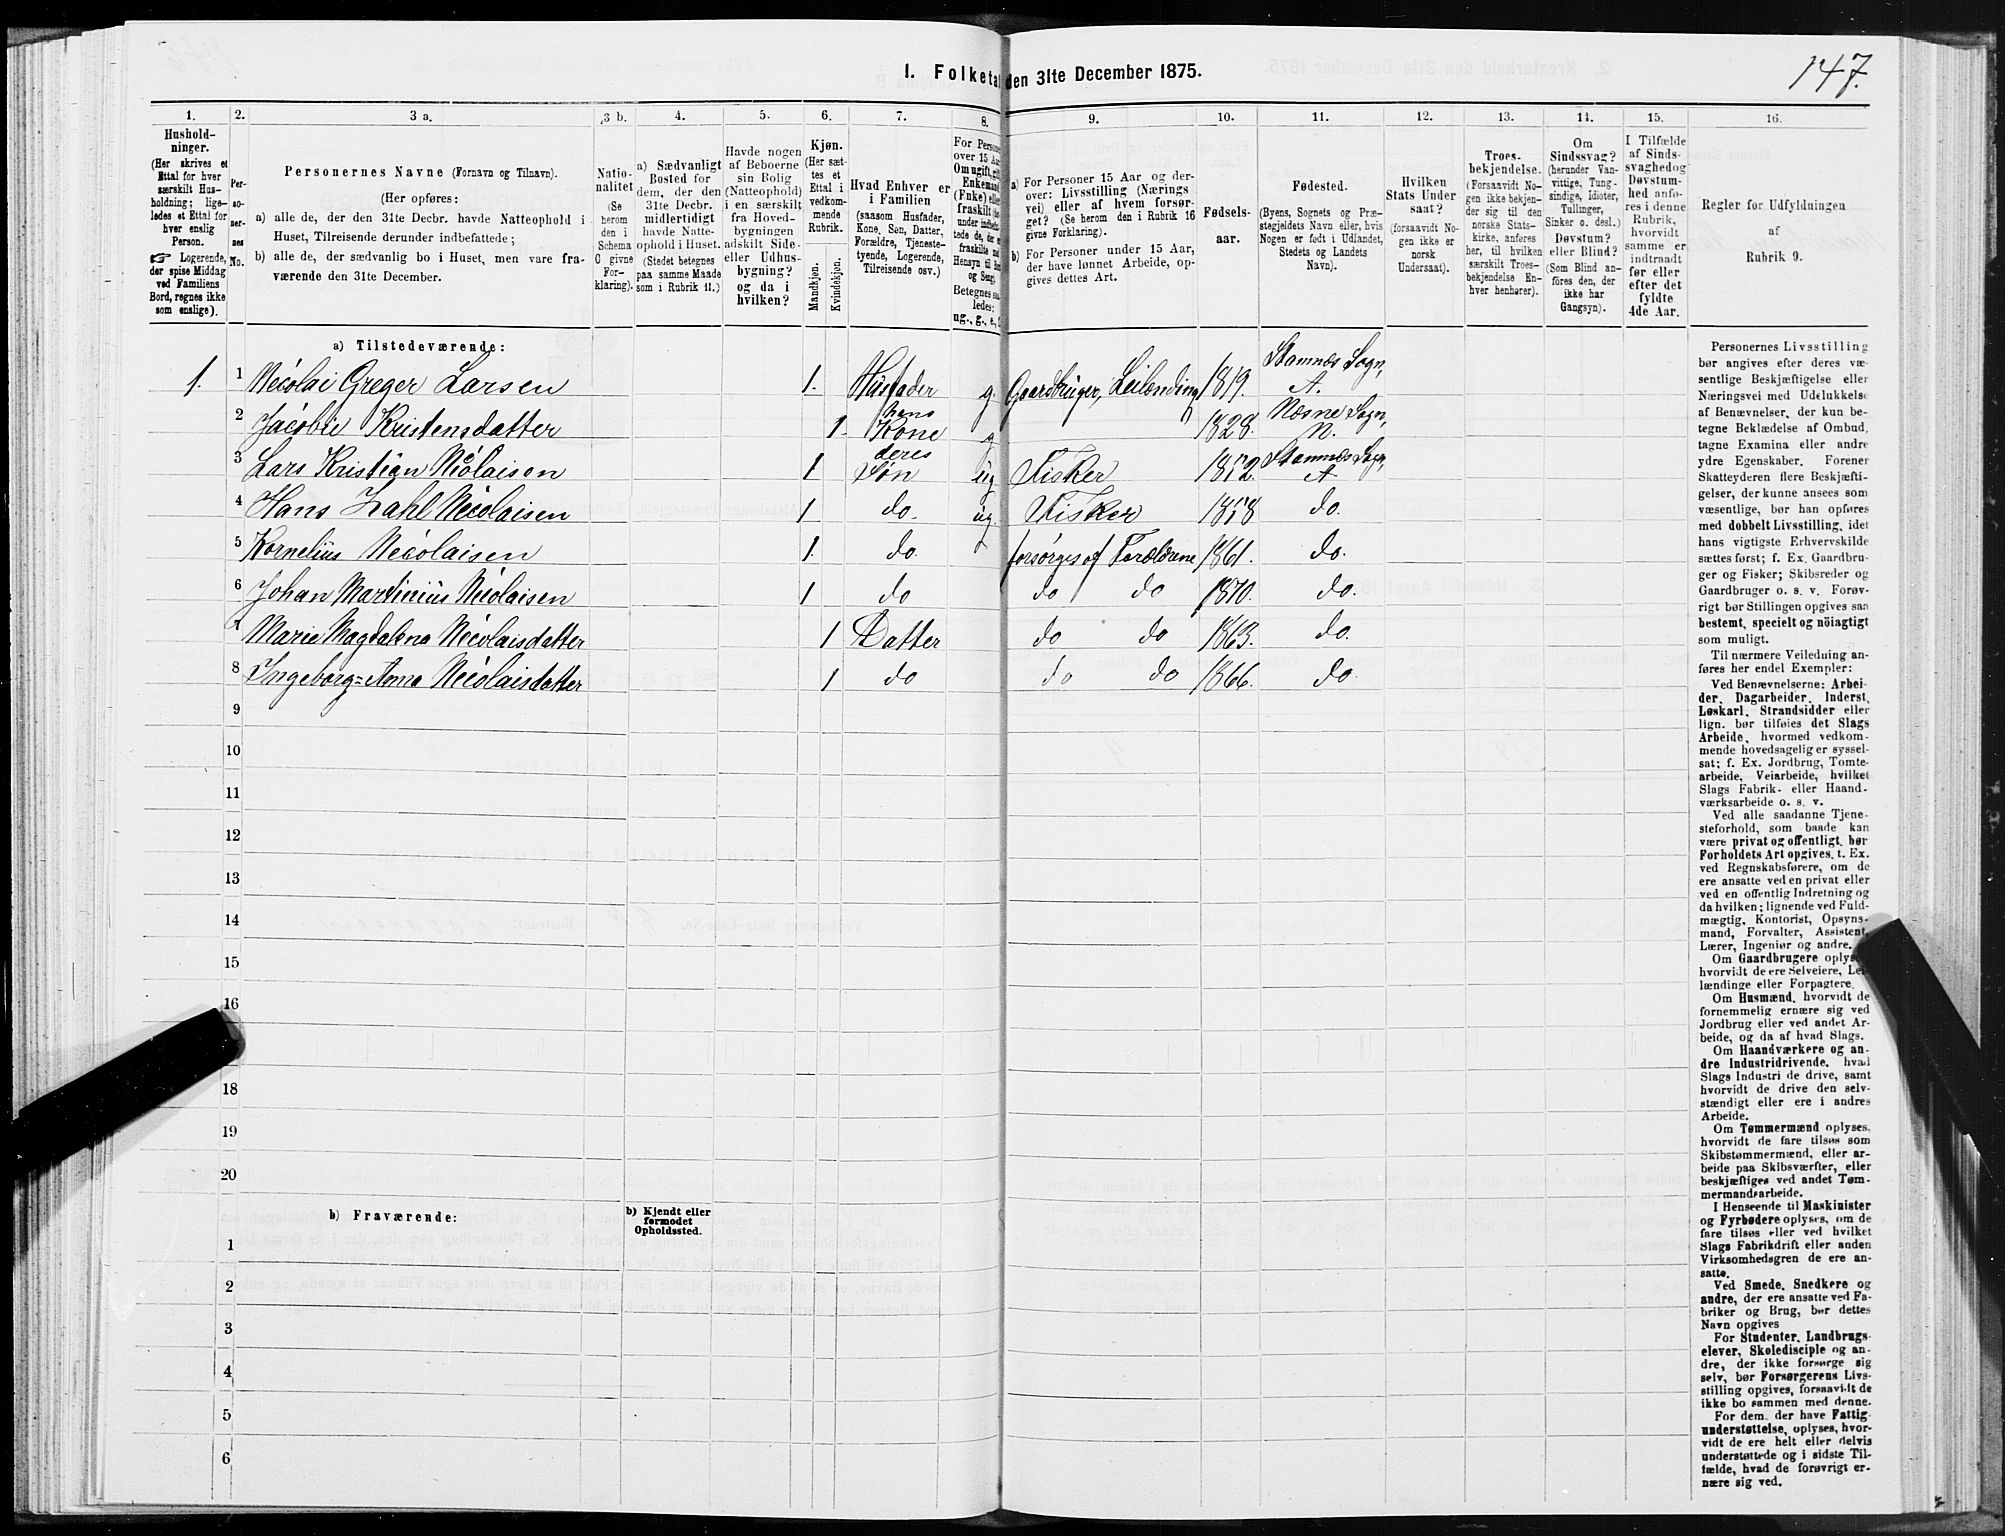 147.
1. Folketal den 31te December 1875.
1. 2. 3 a. 3 b. 4. 5. 6. 7. 8. 9. 10. 11. 12. 13. 14. 15. 16.
Hushold-
ninger.
(Her skrives et
Ettal for hver
særskilt Hus-
holdning; lige-
ledes et Ettal for
hver enslig
Person.
☞ Logerende,
der spise Middag
ved Familiens
Bord, regnes ikke
som enslige).
Per-
so-
ner-
nes
No.
Personernes Navne (Fornavn og Tilnavn).
(Her opføres:
a) alle de, der den 31te Decbr. havde Natteophold i
Huset, Tilreisende derunder indbefattede;
b) alle de, der sædvanlig bo i Huset, men vare fra-
værende den 31te December.
Natio-
nalitet
(Se
herom
den i
Schema
C givne
For-
klaring).
a) Sædvanligt
Bosted for
dem, der den
31te Decbr.
midlertidigt
havde Natte-
ophold i Huset.
(Stedet betegnes
paa samme Maade
som i Rubrik 11.)
Havde nogen
af Beboerne
sin Bolig
(Natteophold)
i en særskilt
fra Hoved-
bygningen
adskilt Side-
eller Udhus-
bygning?
og da i
hvilken?
Kjøn.
(Her sæt-
tes et
Ettal i
vedkom-
mende
Rubrik.
Mandkjøn.
Kvindekjøn.
Hvad Enhver er
i Familien
(saasom Husfader,
Kone, Søn, Datter,
Forældre, Tjeneste-
tyende, Logerende,
Tilreisende osv.)
For Persone
over 15 Aar
Om ugift, gift
Enkemand
(Enke) eller
fraskilt
Betegnes saa-
ledes:
ug., g., e.,
a) For Personer 15 Aar og der-
over: Livsstilling (Nærings
vei) eller af hvem forsør-
get? (Se herom den i Rubrik 16
givne Forklaring).
b) For Personer under 15 Aar,
der have lønnet Arbeide, op-
gives dettes Art.
Fødsels-
aar.
Fødested.
(Byens, Sognets og Præ-
stegjeldets Navn eller, hvis
Nogen er født i Udlandet,
Stedets og Landets
Navn).
Hvilken
Stats Under
saat?
(forsaavidt No-
gen ikke er
norsk
Undersaat).
Troes-
bekjendelse.
(Forsaavidt No-
gen ikke bekjen-
der sig til den
norske Stats-
kirke, anføres
her, til hvilken
særskilt Troes-
bekjendelse En-
hver henhører).
Om
Sindssvag?
(herunder Van-
vittige, Tung-
sindige, Idioter,
Tullinger,
Sinker o. desl.)
Døvstum?
eller Blind?
(Som Blind an-
føres den, der
ikke har
Gangsyn).
I Tilfælde
af Sinds-
svaghedog
Døvstum-
hed anfø-
res i denne
Rubrik,
hvorvidt
samme er
indtraadt
før eller
efter det
fyldte
4de Aar.
Regler for Udfyldningen
af
Rubrik 9.
a) Tilstedeværende:
1. 1 Nicolai Greger Larsen 1. Husfader g. Gaardbruger, Leilending 1819. Stamnæs Sogn, A.
2 Jacobie Kristensdatter 1. hans Kone g 1828. Næsne Sogn, N.
3 Lars Kristian Nicolaisen 1 deres Søn ug Fisker 1852. Stamnæs Sogn, A
4 Hans Zahl Nicolaisen 1 do. ug. Fisker 1858 do.
5 Kornelius Nicolaisen 1. do. forsørges af Forældrene 1861. do.
6 Johan Martinius Nicolaisen 1 do do do 1870. do.
7 Marie Magdalena Nicolaisdatter 1 Datter do do 1863. do.
8 Ingeborg=Anna Nicolaisdatter 1 do do do 1866. do.
9
10
11
12
13
14
15
16
18
19
20
b) Fraværende:
b) Kjendt eller
formodet
Opholdssted.
1
2
3
4
5
6
Personernes Livsstilling
bør angives efter deres væ-
sentlige Beskjæftigelse eller
Næringsvei med Udelukkelse
af Benævnelser, der kun be-
tegne Beklædelse af Ombud,
tagne Examina eller andre
ydre Egenskaber. Forener
Skatteyderen flere Beskjæfti-
gelser, der kunne ansees som
væsentlige, bør han opføres
med dobbelt Livsstilling, idet
hans vigtigste Erhvervskilde
sættes først; f. Ex. Gaardbru-
ger og Fisker; Skibsreder og
Gaardbruger o. s. v. Forøv-
rigt bør Stillingen opgives saa
bestemt, specielt og nöiagtigt
som muligt.
Til nærmere Veiledning an-
føres her endel Exempler:
Ved Benævnelserne: Arbei-
der, Dagarbeider, Inderst,
Løskarl, Strandsidder eller
lign. bør tilføies det Slags
Arbeide, hvormed vedkom-
mende hovedsagelig er syssel-
sat; f. Ex. Jordbrug, Tomte-
arbeide, Veiarbeide, hvilket
Slags Fabrik- eller Haand-
værksarbeide o. s. v.
Ved alle saadanne Tjene-
steforhold, som baade kan
være privat og offentligt, bør
Forholdets Art opgives, t. Ex.
ved Regnskabsførere, om de
ere ansatte ved en privat eller
ved en offentlig Indretning og
da hvilken; lignende ved Fuld-
mægtig, Kontorist, Opsyns-
mand, Forvalter, Assistent,
Lærer, Ingeniør og andre.
Om Gaardbrugere oplyses,
hvorvidt de ere Selveiere, Lei-
lændinge eller Forpagtere.
Om Husmænd, hvorvidt de
fornemmelig ernære sig ved
Jordbrug eller ved andet Ar-
beide, og da af hvad Slags.
Om Haandværkere og an-
dre Industridrivende, hvad
Slags Industri de drive, samt
hvorvidt de drive den selv-
stændigt eller ere i andres
Arbeide.
Om Tømmermænd oplyses,
hvorvidt de fare tilsøs som
Skibstømmermænd, eller ar-
beide paa Skibsværfter, eller
beskjæftiges ved andet Tøm-
mermandsarbeide.
I Henseende til Maskinister
og Fyrbødere oplyses, om de
fare tilsøs eller ved hvilket
Slags Fabrikdrift eller anden
Virksomhedsgren de ere an-
satte.
Ved Smede, Snedkere og
andre, der ere ansatte ved Fa-
briker og Brug, bør dettes
Navn opgives
For Studenter, Landbrugs-
elever, Skoledisciple og an-
dre, der ikke forsørge sig
selv, bør Forsørgerens Livs-
stilling opgives, forsaavidt de
ikke bo sammen med denne.
For dem, der have Fattig-
understøttelse, oplyses, hvor-
vidt de ere helt eller delvis
understøttede og i sidste Til-
fælde, hvad de forøvrigt er-
nære sig ved.